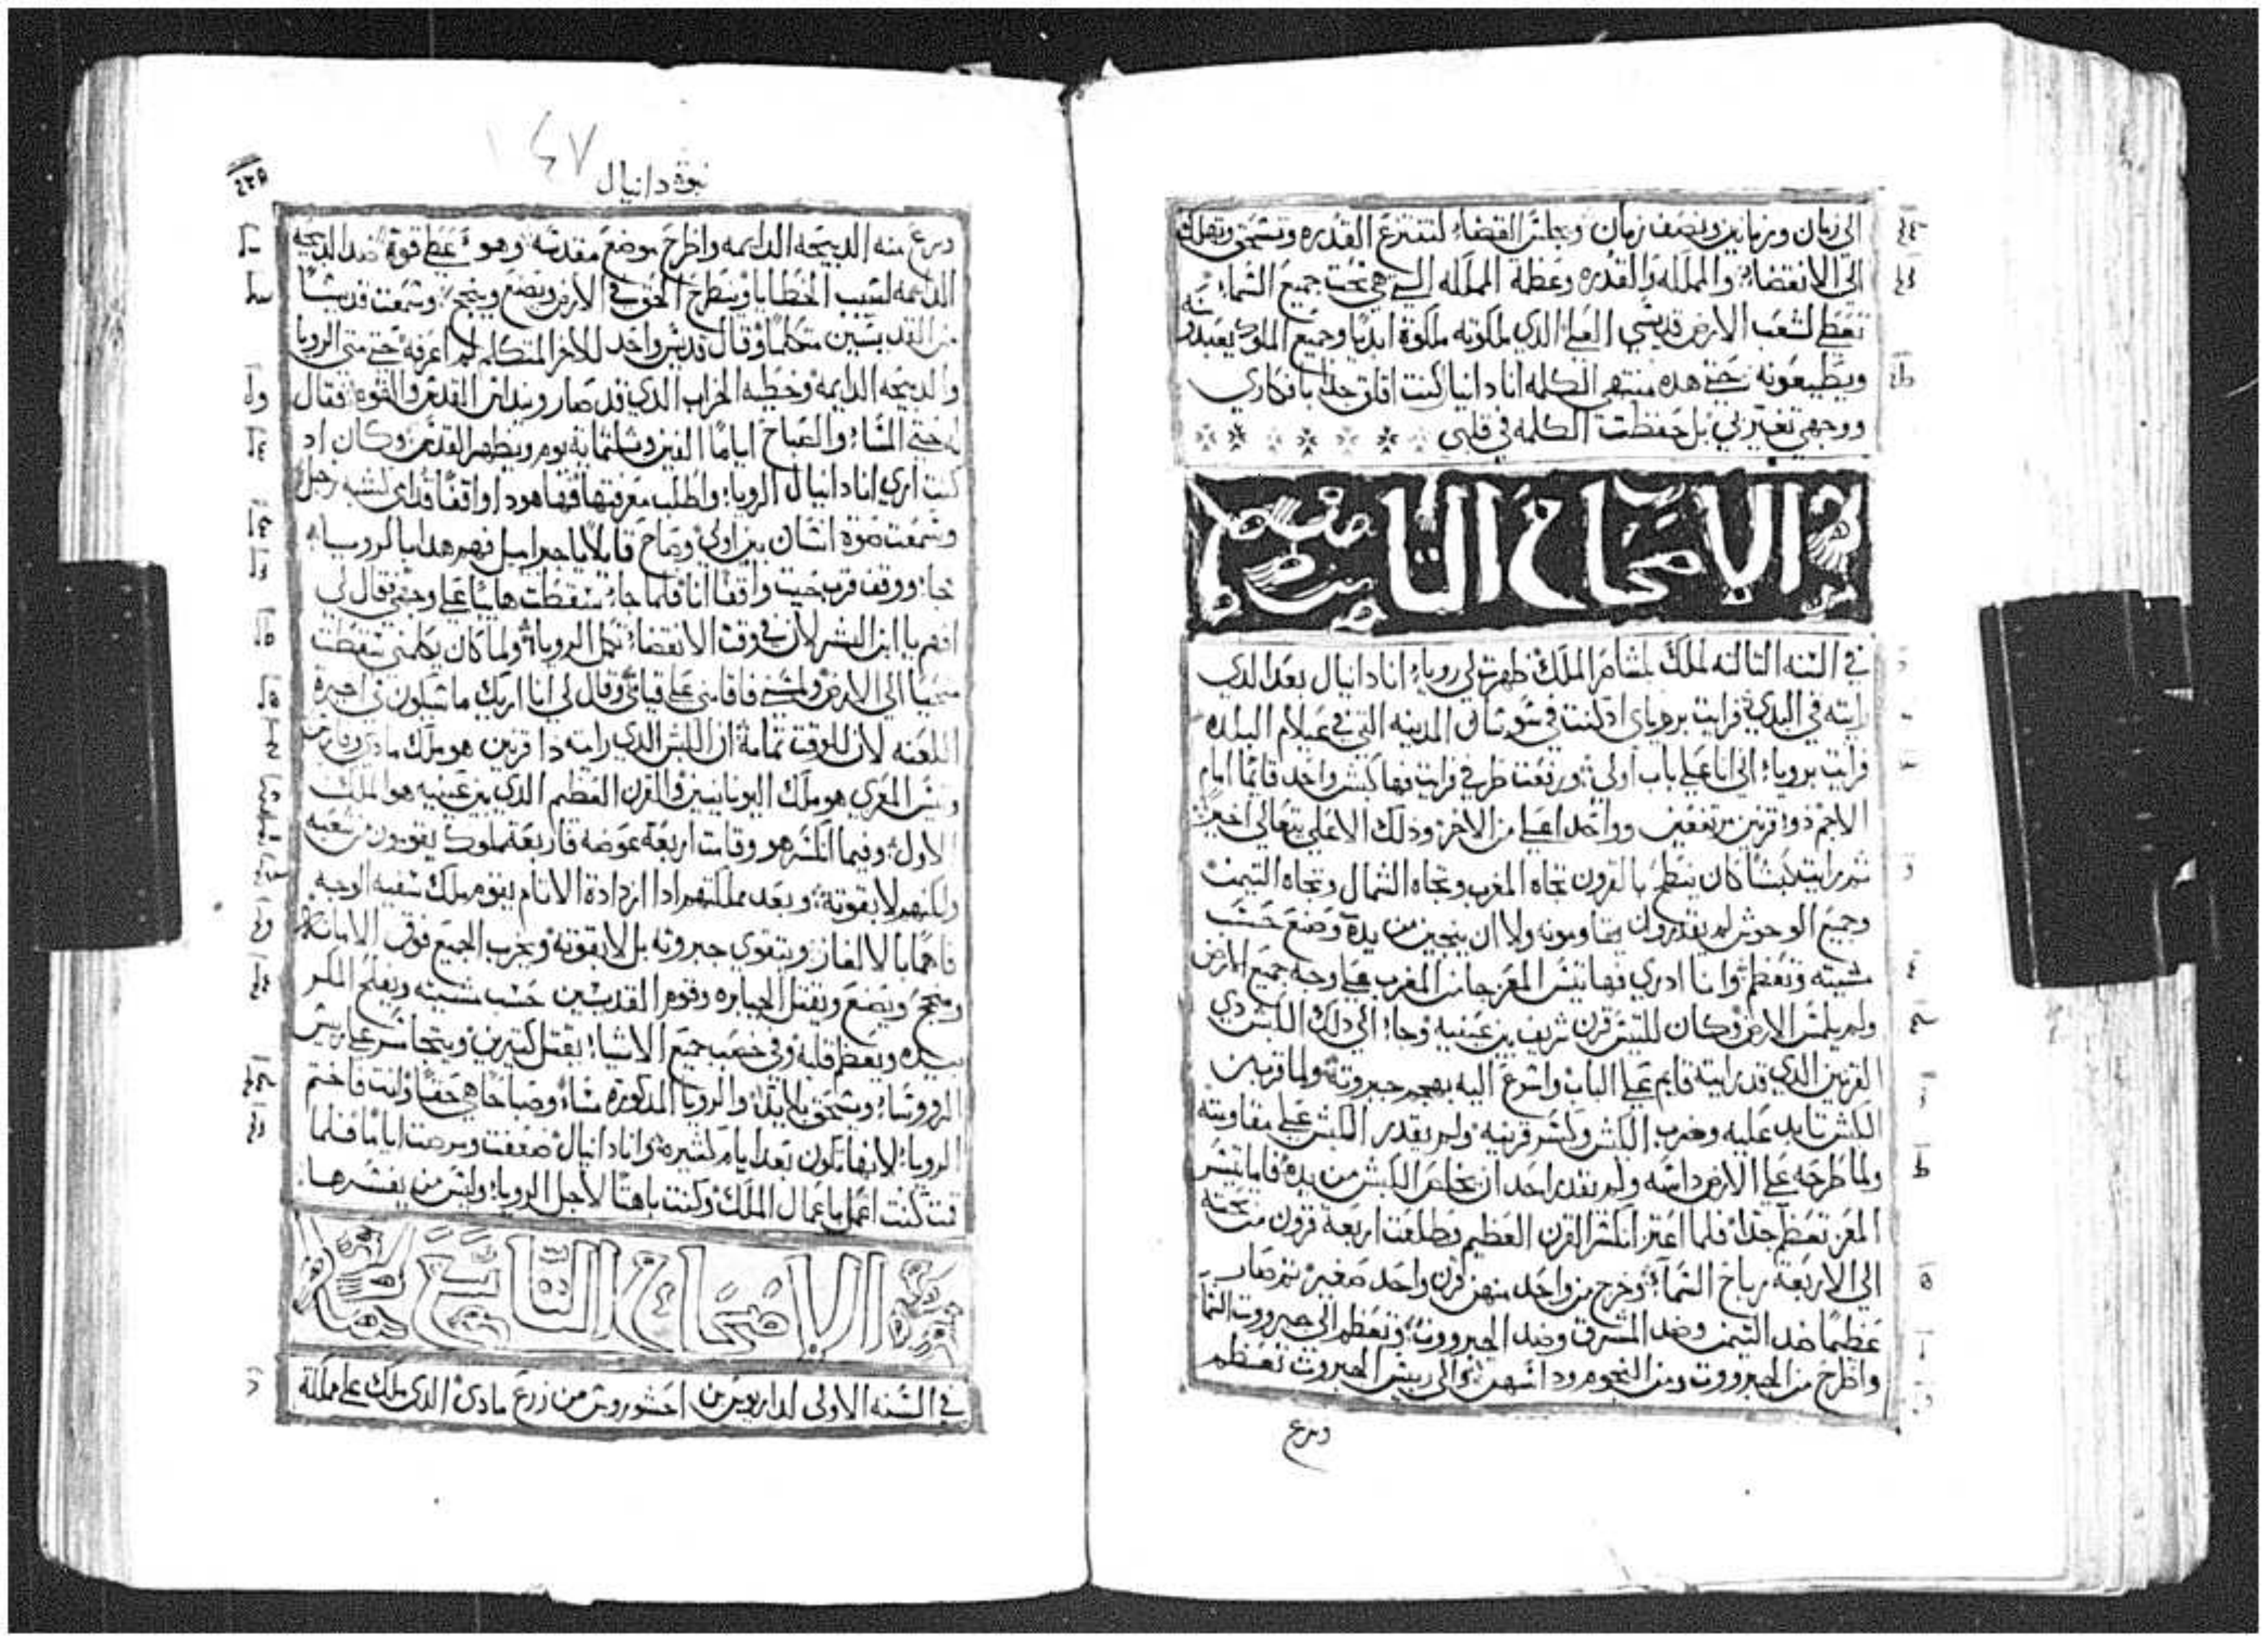 الي زمان وزمانين ونصف زمان ويجلس القضاء لتنتزع القدره وتسحق وتهلك
الي الانقضاء والمملكه والقدره وعظمة المملكه التي هي تحت جميع السماء
تعطي لشعب الارض قديسي العلي الذي ملكوته ملكوة ابديا وجميع الملوك يعبدونه
ويطيعونه حتي هذه منتهي الكلمه انا دانيال كنت اقلق جدا بافكاري
ووجهي تغير بي بل حفظت الكلمه في قلبي
الاصحاح التامن
في السنه التالته لملك بلشاصر الملك ظهرت لي رويا انا دانيال بعد الدي
رايته في البدي فرايت بروياي اد كنت في شوشان المدينه التي في عيلام البلده
فرايت برويا اني انا علي باب اولي ورفعت طرفي فرايت فها كبش واحد قايما امام
الاجم دو قرنين مرتفعين وواحد اعلي من الاخر ودلك الاعلي يتعالي اخيرا
تم رايت كبشا كان ينطح بالقرون تجاه المغرب وتجاه الشمال وتجاه التيمن
وجميع الوحوش لم يقدروا يقاومونه ولا ان ينجين من يده وصنع حسب
مشيته وتعظم وانا ادري فها تيس المعز جا من المغرب علي وجه جميع الارض
ولم يلمس الارض وكان للتيس قرن شريف بين عينيه وجا الي دلك الكبش دي
القرنين الدي قد رايته قايم علي الباب واسرع اليه بهجم جبروته ولما قرب من
الكبش تايد عليه وضرب الكبش وكسر قرنيه ولم يقدر الكبش علي مقاومته
ولما طرحه علي الارض داسه ولم يقدر احد ان يخلص الكبش من يده فاما تيس
المعز تعظم جدا فلما اعتز انكسر القرن العظيم وطلعت اربعة قرون من تحته
الي الاربعة رياح السماء وخرج من واحد منهن قرن واحد صغير تم صار
عظيما ضد التيمن وضد المشرق وضد الجبروت وتعظم الي جبروت السما
واطرح من الجبروت ومن النجوم وداسهن والي رييس الجبروت تعظم
ونزع
١٤٧
نبوة دانيال
ونزع منه الدبيحه الدايمه واطرح موضع مقدسه وهو عطي قوة ضد الدبيحه
الدايمه لسبب الخطايا وينطرح الحق في الارض ويصنع وينجح وسمعت قديسا
من القديسين متكلما وقال قديس واحد للاخر المتكلم لم اعرفه حتي متي الرويا
والدبيحه الدايمه وخطيه الخراب الدي قد صار ويداس القدس والقوه فقال
له حتي المساء والصباح اياما الفين وتلتماية يوم ويطهر القدس وكان اد
كنت اري انا دانيال الرويا واطلب معرفتها فها هودا واقفا قدامي كشبه رجل
وسمعت صوة انسان بين اولي وصاح قايلا يا جبراييل فهم هدا بالرويا
جا ووقف قرب حيت واقفا انا فلما جاء سقطت هايبا علي وجهي فقال لي
افهم يا ابن البشر لان في وقت الانقضاء تكمل الرويا ولما كان يكلمني سقطت
منحيا الي الارض ولمسني فاقامني علي قيامي وقال لي انا اريك ما سيكون في اخرة
اللعنه لان للوقت تمامة ان الكبش الدي رايته دا قرنين هو ملك مادي وفارس
وتيس المعزي هو ملك اليونانيين والقرن العظيم الدي بين عينيه هو الملك
الاول وفيما انكسر هو وقامت اربعة عوضه فاربعة ملوك يقومون من شعبه
ولكنهم لا بقوته وبعد مملكتهم ادا ازدادة الاتام يقوم ملك سفيه الوجه
فاهما بالالغاز ويتقوي جبروته بل لا بقوته ويخرب الجميع فوق الامانه
وينجح ويصنع ويقتل الجبابره وقوم القديسين حسب مشيته ويفلح المكر
بيده ويعظم قلبه وفي خصب جميع الاشيا يقتل كتيرين ويتجاسر علي رييس
الرووسا وينسحق بلا يد والرويا المدكوره مساء وصباحا هي حقا وانت فاختم
الرويا لانها تكون بعد ايام كتيره وانا دانيال ضعفت ومرضت اياما فلما
قمت كنت اعمل باعمال الملك وكنت باهتا لاجل الرويا وليس من يفسرها
الاصحاح التاسع
في السنه الاولي لداريوس بن احشوروش من زرع مادي الدي ملك علي مملكة